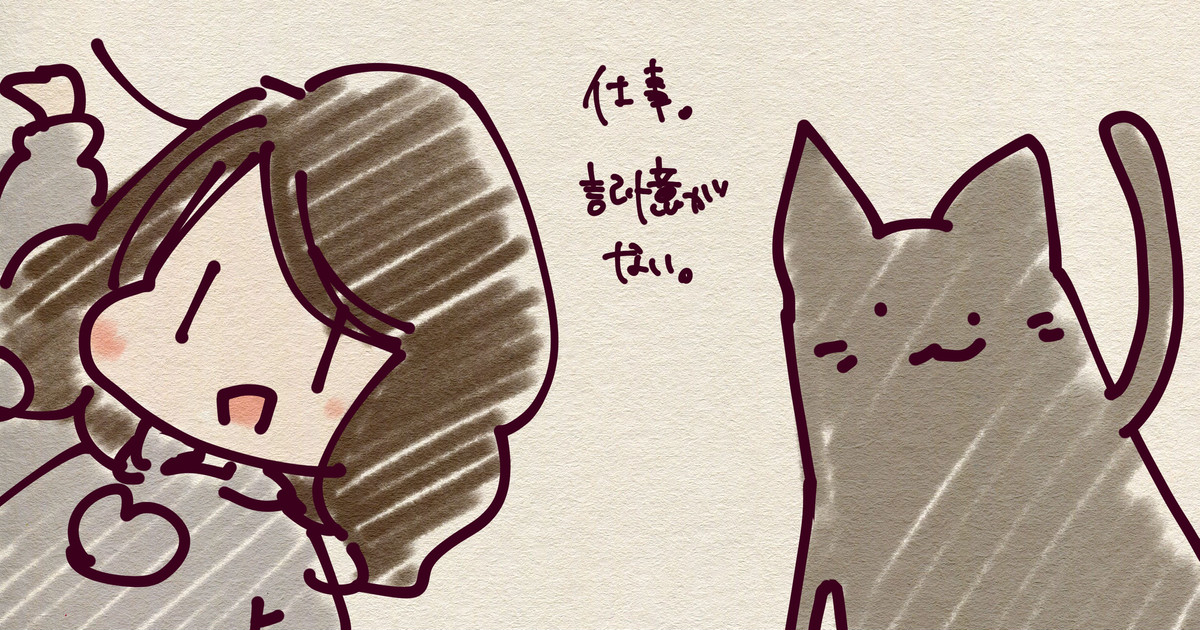 仕事。
記憶が
ない。